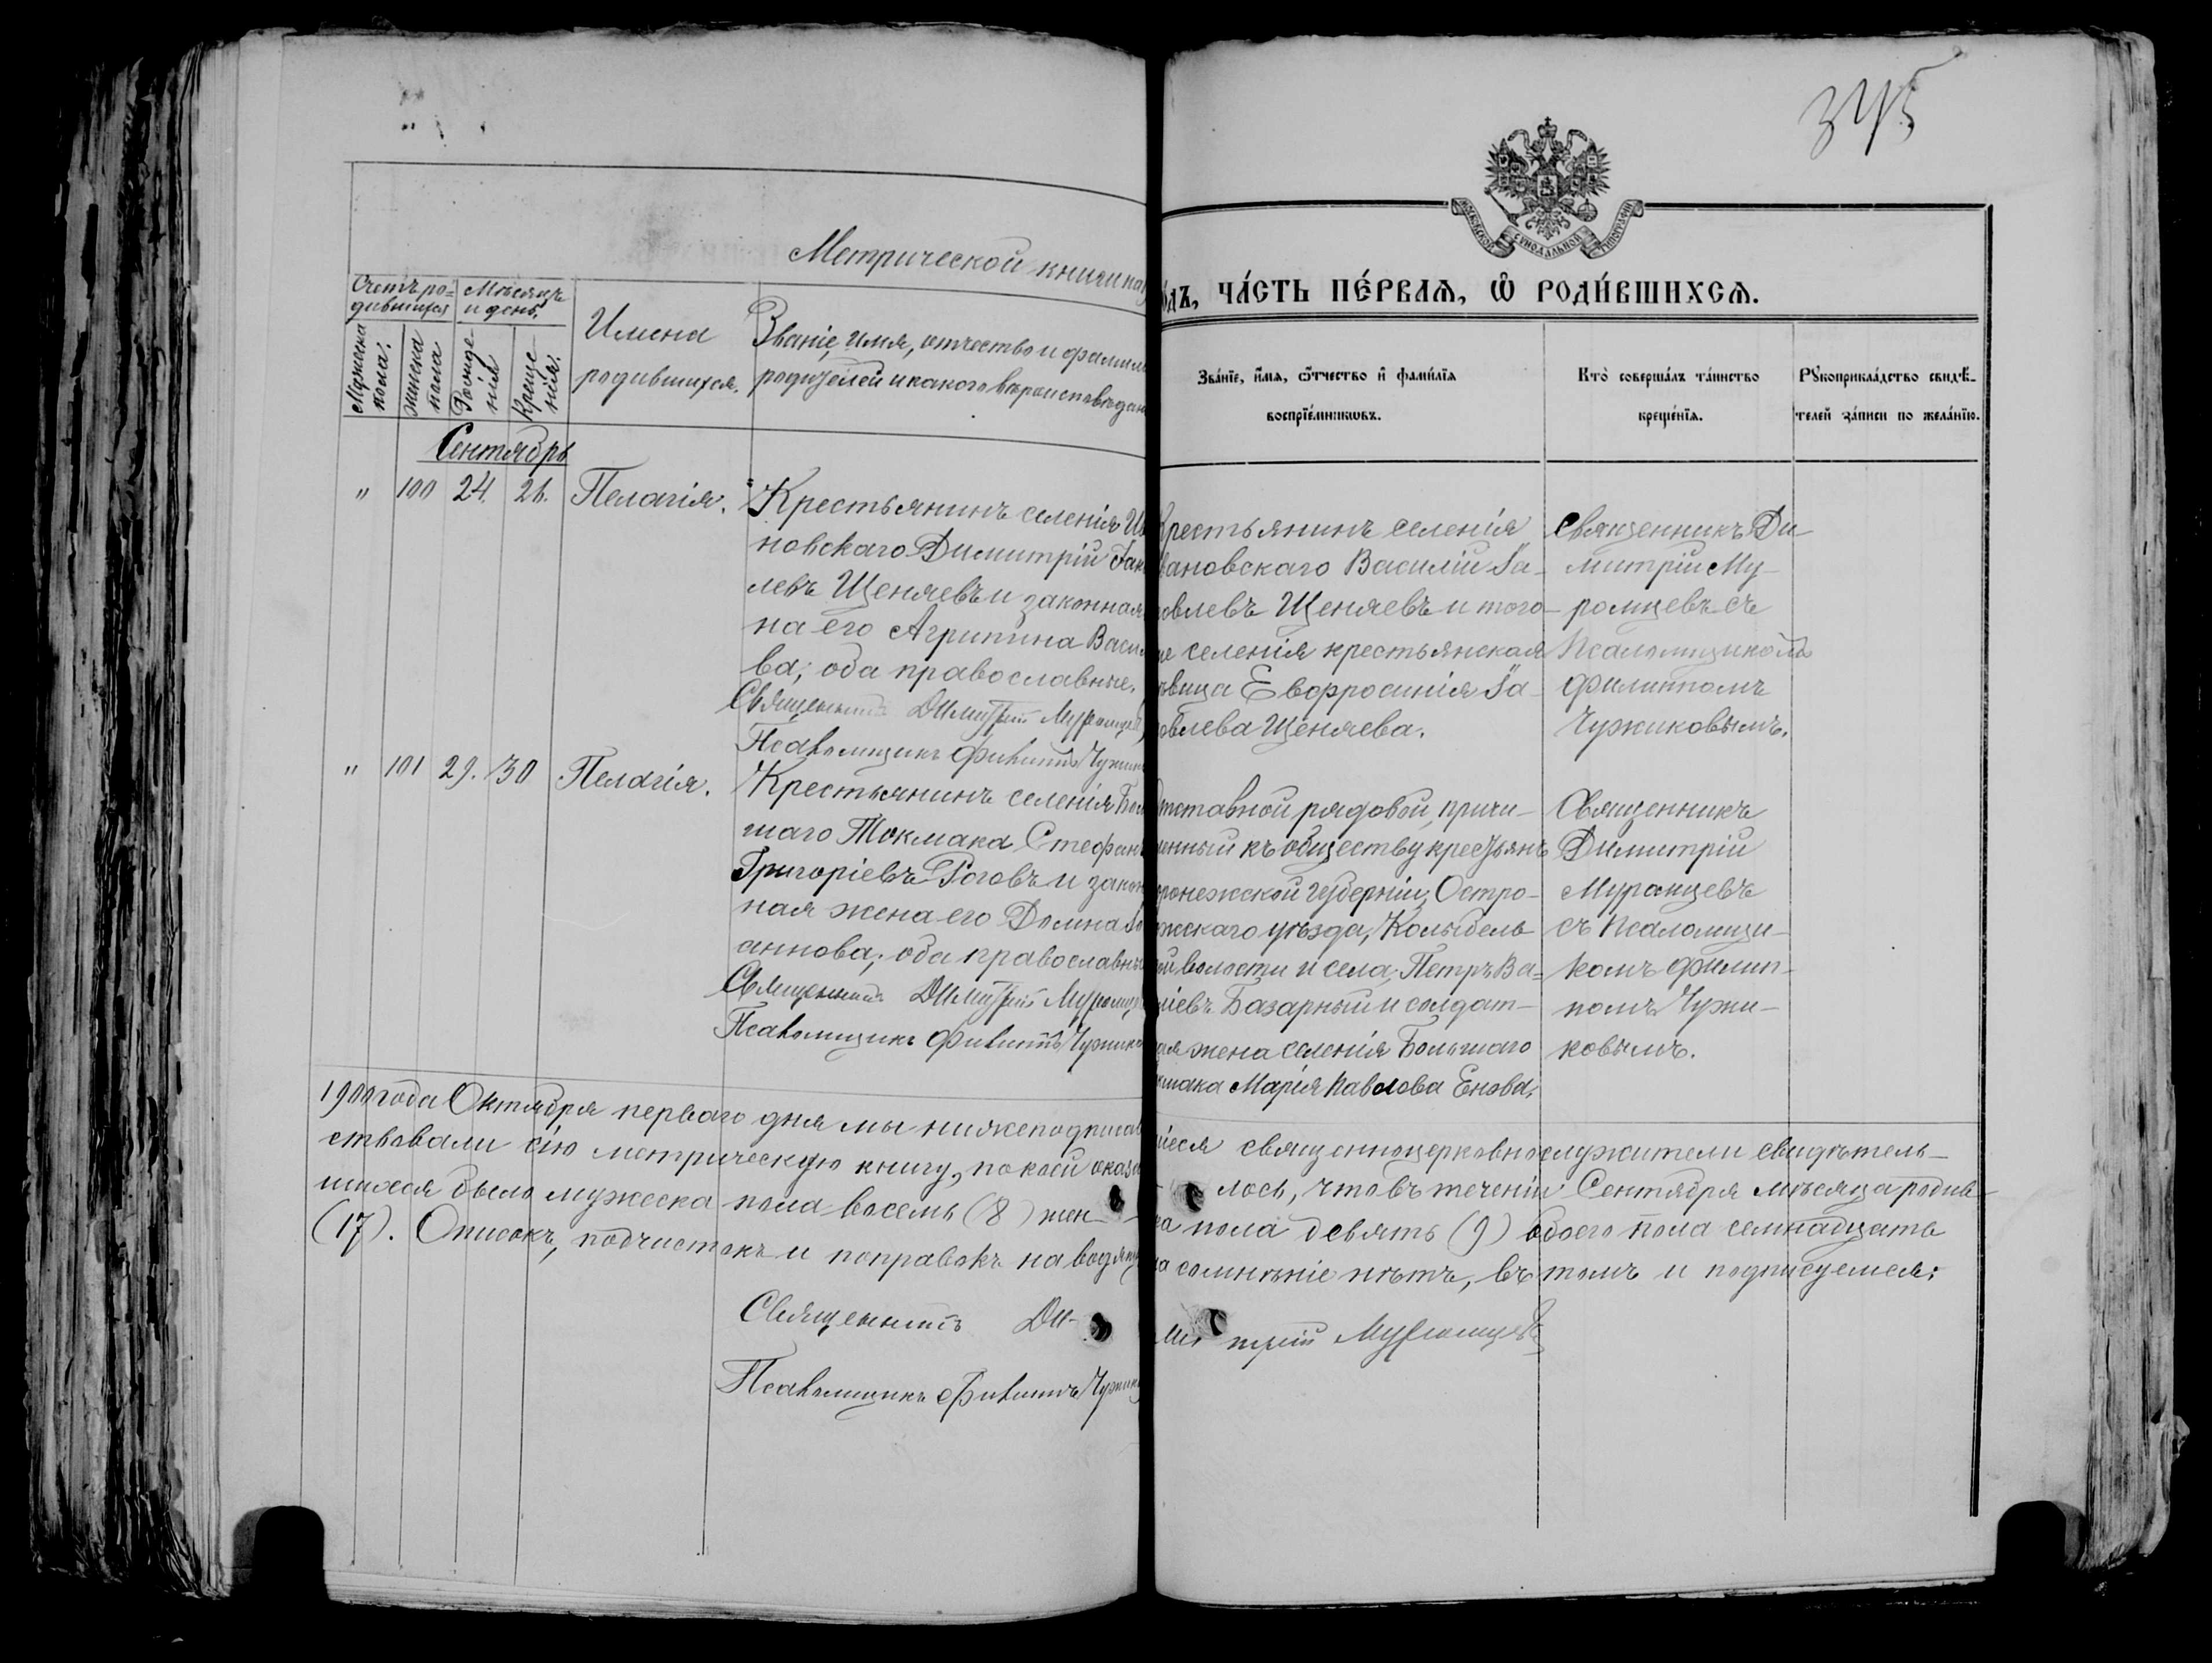 345
МОСКОВСКОЙ СѴНОДАЛЬНОЙ ТИПОГРАФІИ
Метрической книги на
ЧА́СТЬ ПЕ́РВАѦ, Ѽ РОДИ́ВШИХСѦ.
Счетъ ро-
дившихся
Мѣсяцъ
и день.
Мужеска
пола.
женска
пола
Рожде-
нія
Креще-
нія.
Имена
родившихся.
Званіе, имя, отчество и фамилі
родителей и какого вѣроисповѣдан
Зва́нїе, и҆́мѧ, ѻ҆́тчество и҆ фамѝлїѧ
воспрїе́мниковъ.
Кто̀ соверша́лъ та́инство
креще́нїѧ.
Рꙋкоприкла́дство свидѣ́-
телей за́писи по жела́нїю.
Сентябрь
" 100 24. 26. Пелагія.
Крестьянинъ селенія Ив
новскаго Димитрій Іак
левъ Щеняевъ и законная
на его Агрипина Васил
ва; оба православные.
Священникъ Димитрій Муромцевъ
Псаломщикъ Филиппъ Чужик
Крестьянинъ селенія
вановскаго Василій Іа-
овлевъ Щеняевъ и того-
же селенія крестьянская
вица Евфросинія Іа-
овлева Щеняева.
Священникъ Ди-
митрій Му-
ромцевъ съ
Псаломщикомъ
Филиппомъ
Чужиковымъ.
" 101 29. 30 Пелагія.
Крестьянинъ селенія Бол
шаго Токмака Стефанъ
Григоріевъ Роговъ и закон
ная жена его Домна Іо
аннова; оба православны
Священникъ Димитрій Муромце
Псаломщикъ Филиппъ Чужико
тставной рядовой, причи-
ленный къ обществу крестьянъ
ронежской губерніи, Остро-
жскаго уѣзда, Колыбель
ой волости и села, Петръ Ва-
ліевъ Базарный и солдат-
ая жена селенія Большаго
кмака Марія Павлова Енова.
Священникъ
Димитрій
Муромцевъ
съ Псаломщи-
комъ Филип-
помъ Чужи-
ковымъ.
1900 года Октября перваго дня мы нижеподписав шіеся священноцерковнослужители свидѣтель-
ствовали сію метрическую книгу, по коей оказа лось, что въ теченіи Сентября мѣсяца родив-
шихся было мужеска пола восемь (8) жен- ка пола девять (9) обоего пола семнадцать
(17). Описокъ, подчистокъ и поправокъ наводящ на сомнѣніе нѣтъ, въ томъ и подписуемся:
Священникъ Ди- митрій Муромцевъ
Псаломщикъ Филиппъ Чужико